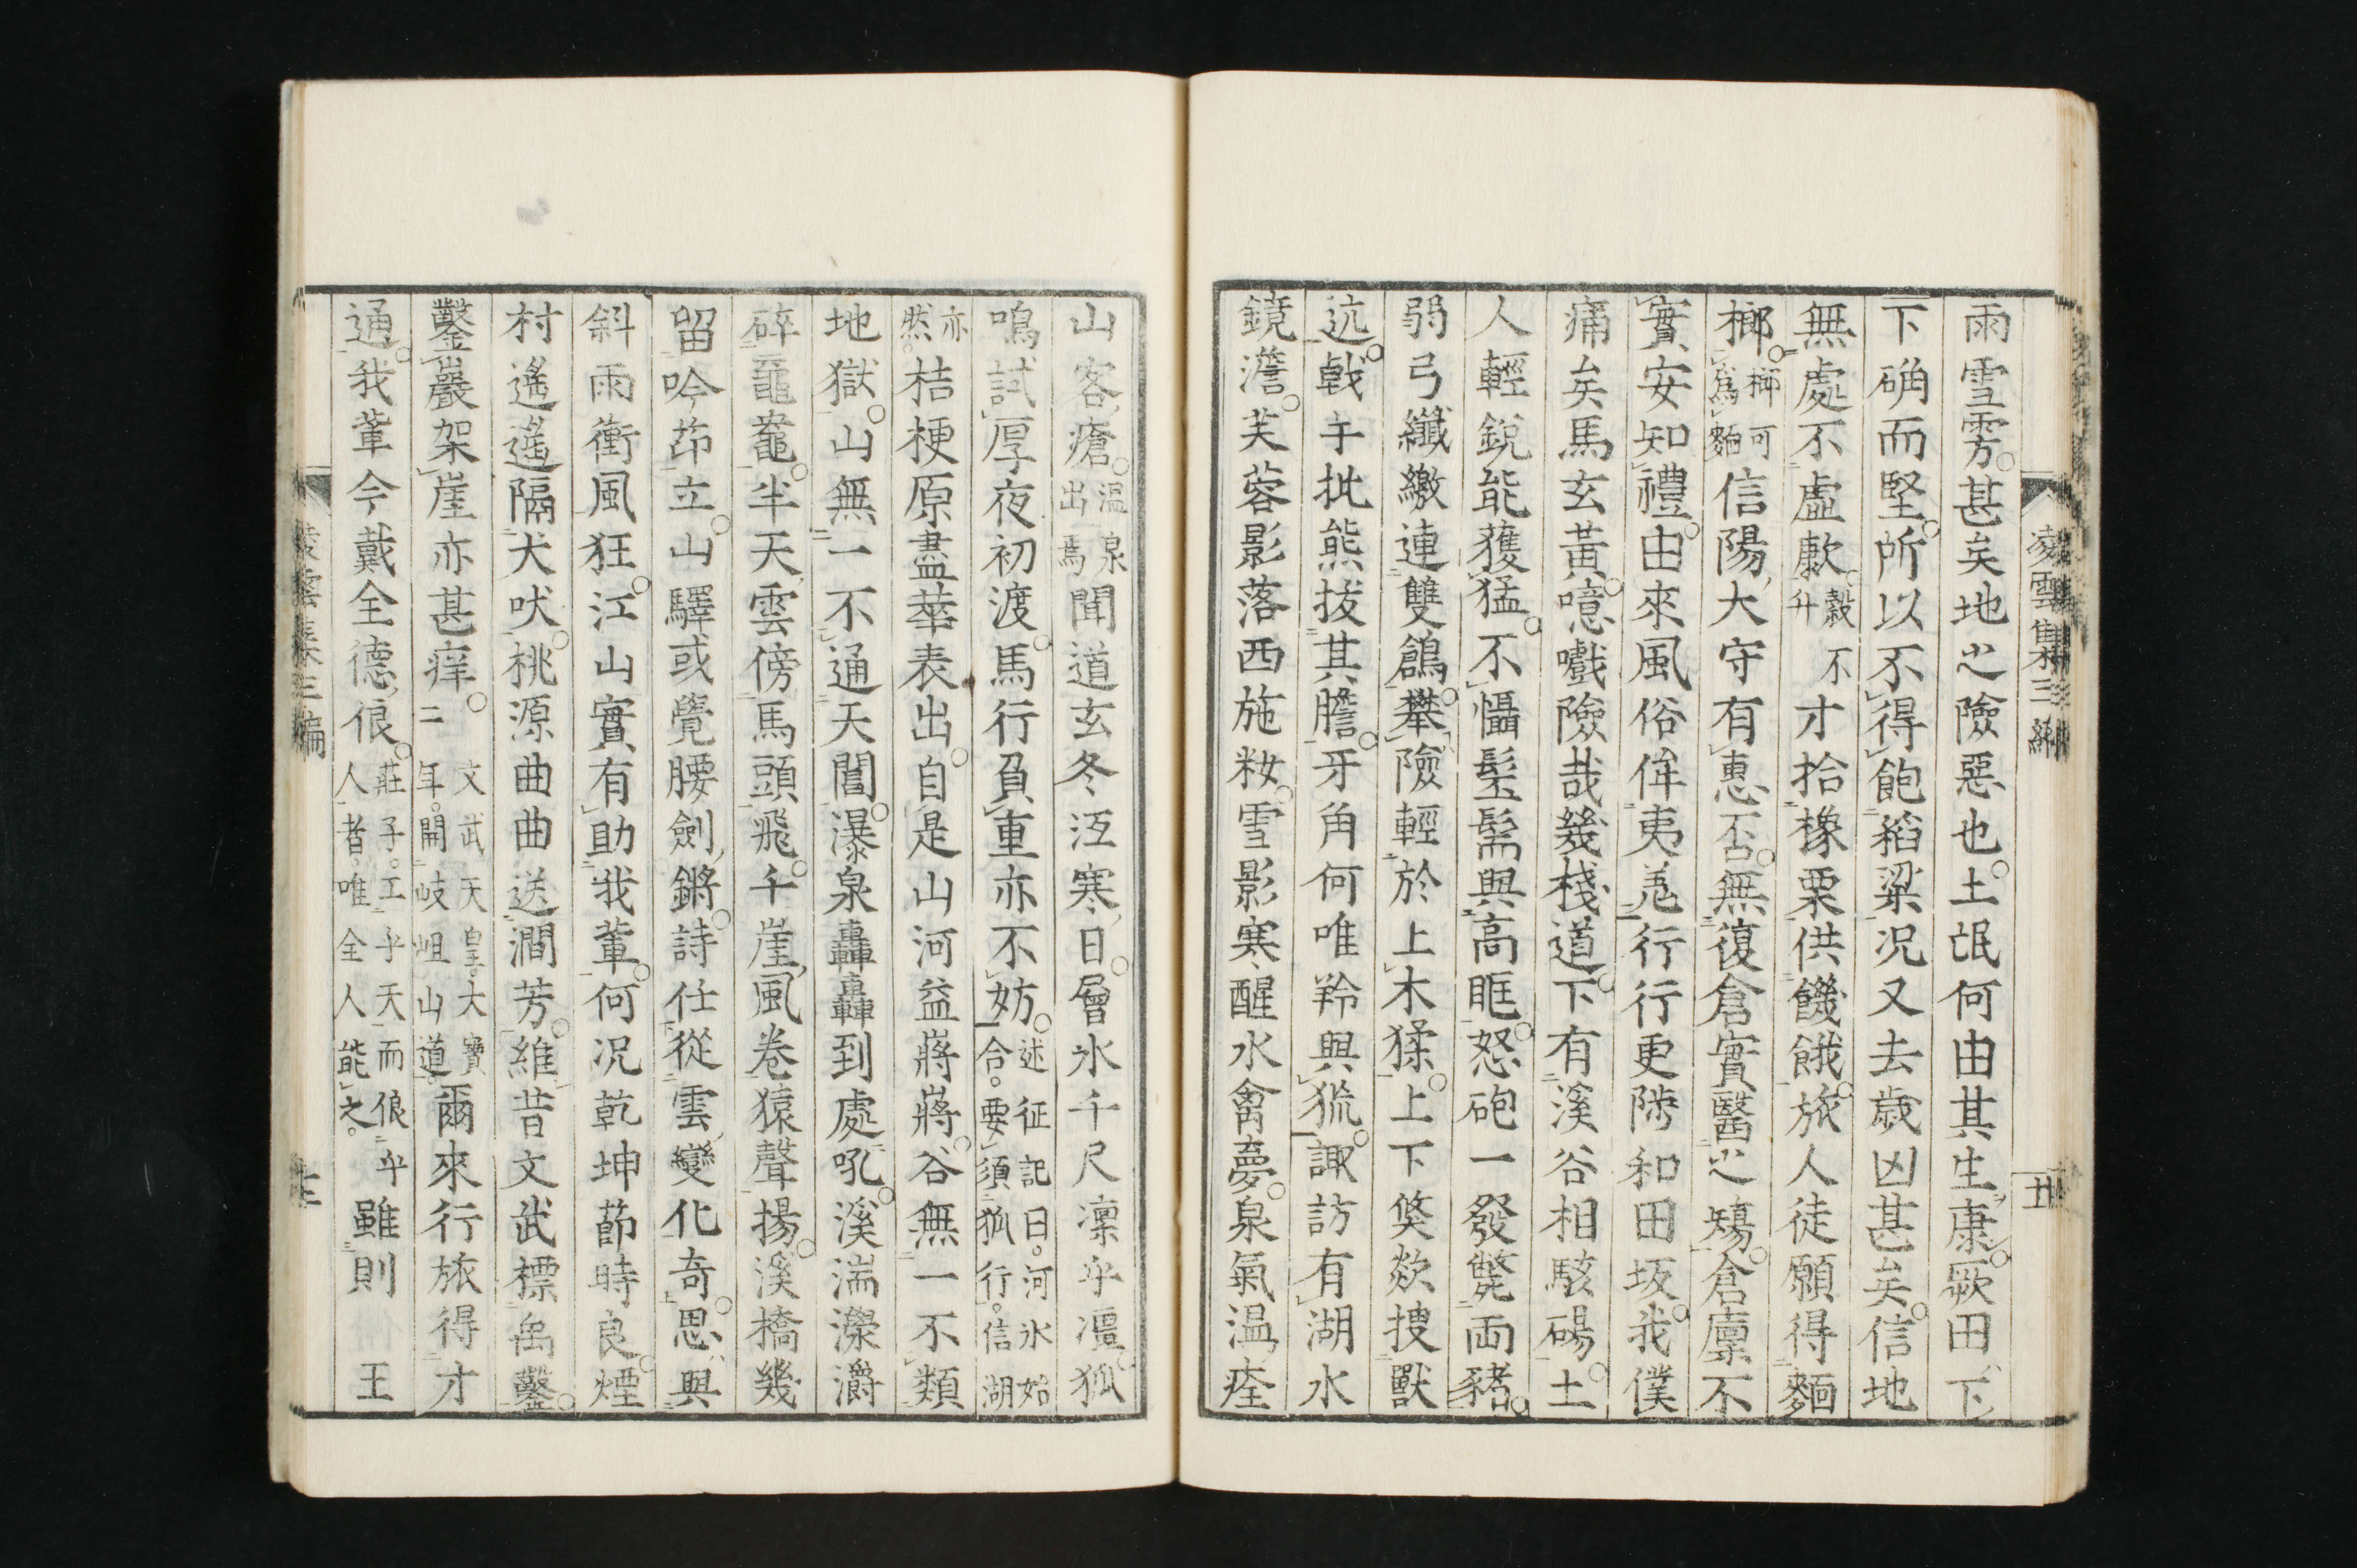 雨雪雱甚矣地之險惡也土氓何由其生康厥田下
下确而堅所以不得飽稻粱况又去歲凶甚矣信地
無處不虛歉穀不升才拾橡栗供饑餓旅人徒願得麵
榔榔可爲麪信陽大守有惠否無復倉實醫之殤倉廩不
實安知禮由來風俗侔夷羌行行更陟和田坂我僕
痡矣馬玄黃噫嚱險哉幾棧道下有溪谷相駭碭土
人輕銳能獲猛不懾髽髵與高眶怒砲一發斃両豬
弱弓纖繳連雙鶬攀險輕於上木猱上下倐欻搜獸
迒戟手批熊拔其膽牙角何唯羚與狐諏訪有湖水
鏡澹芙蓉影落西施粧雪影寒醒水禽夢泉氣温痊
山客瘡温泉出焉聞道玄冬沍寒日層氷千尺凜乎凛狐
鳴試厚夜初渡馬行負重亦不妨述征記曰河氷始合要須狐行信湖
亦然桔梗原盡華表出自是山河益蔣蔣谷無一不類
地獄山無一不通天閶瀑泉轟轟到處吼溪湍濼灂
碎黿鼇半天雲傍馬頭飛千崖風卷猿聲揚溪橋幾
留吟茆立山驛或覺腰劍鏘詩仕從雲變化奇思與
斜雨衝風狂江山實有助我輩何况乾坤莭時良煙
村遙遙隔犬吠桃源曲曲送澗芳維昔文武標禹鑿
鑿巖架崖亦甚痒文武天皇大寶二年開岐岨山道爾來行旅得才
通我輩今戴全德俍莊子工乎天而俍乎人者唯全人能之雖則王
凌雲集三編
五
凌雲集三編